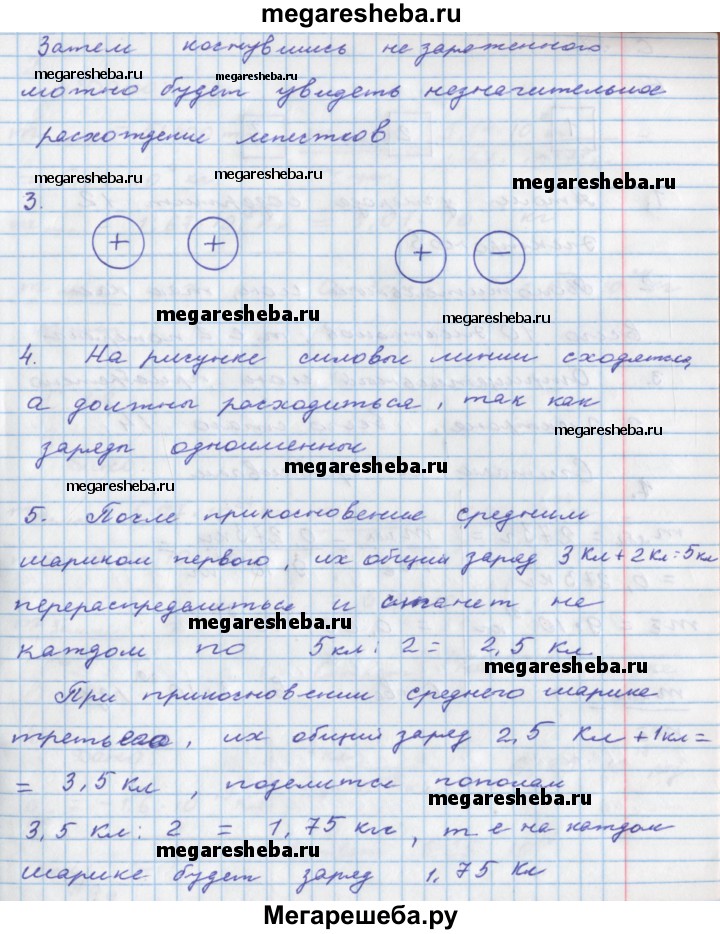 megaresheba.ru
Затем коснувшись незаряженного
megaresheba.ru megaresheba.ru
можно будет увидеть незначительное
расхождение лепестков
megaresheba.ru megaresheba.ru megaresheba.ru
3.
+ + + −
megaresheba.ru megaresheba.ru
4. На рисунке силовые линии сходятся,
а должны расходиться, так как
заряды одноименные
megaresheba.ru
megaresheba.ru
5. После прикосновение средним
шариком первого, их общий заряд 3 Кл + 2 Кл = 5 Кл
перераспределиться и станет не
megaresheba.ru
каждом по 5 Кл : 2 = 2,5 Кл
megaresheba.ru
При прикосновении среднего шарике
третьего, их общий заряд 2,5 Кл + 1 Кл =
= 3,5 Кл, поделится пополам
megaresheba.ru
3,5 Кл : 2 = 1,75 Кл, т.е на каждом
megaresheba.ru
шарике будет заряд 1,75 Кл
Мегарешеба.ру